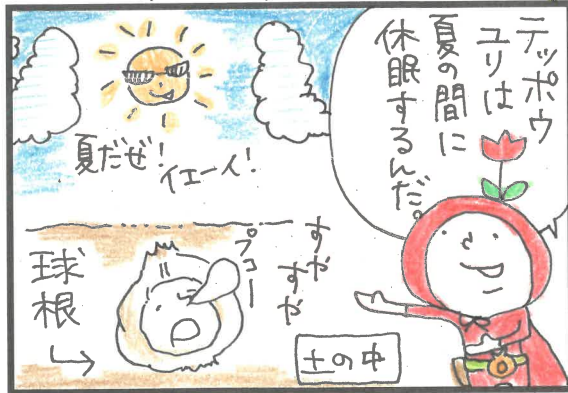 テッポウ
ユリは
夏の間に
休眠するんだ。
夏だぜ!
イエーイ!
すや
すや
プユー
球根
土の中